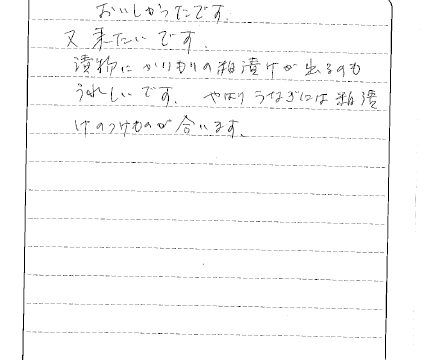 おいしかったです。
又来たいです。
漬物にかりもりの粕漬けが出るのも
うれしいです。やはりうなぎには粕漬
けのつけものが合います。